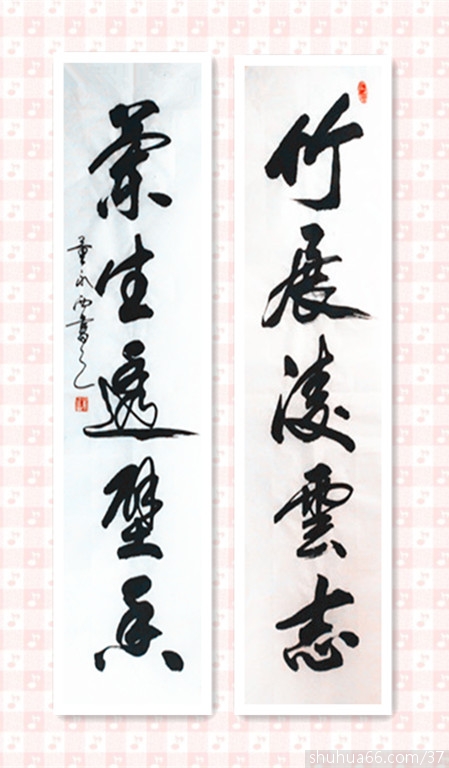 竹展凌雲志
蘭生透壁香
董永西書之
shuhua66.com/37